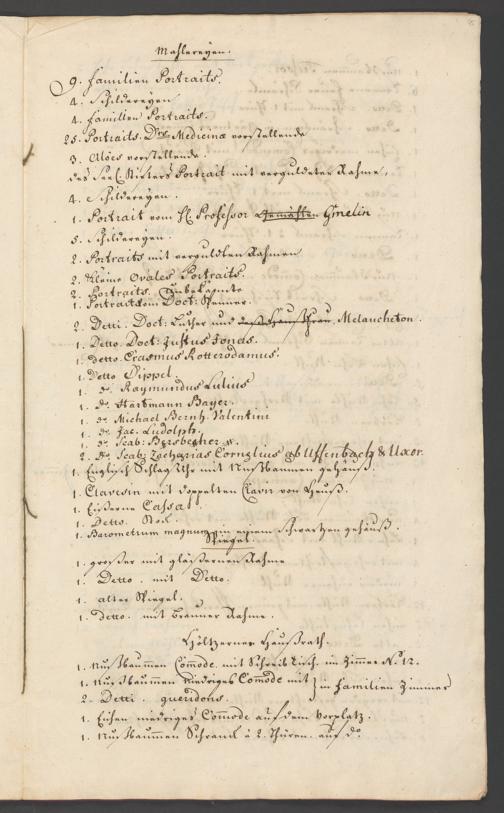 Mahlereyen.
9. Familien Portraits.
4. Schildereyen
4. Familien Portraits.
25. Portraits Drs Medicinæ vorstellende
3. Aloës vorstellende.
des Seel. Stifters Portrait mit verguldeter Rahme,
4. Schildereyen.
1. Portrait vom H. Professor Gmelin
5. Schildereyen.
2. Portraits mit verguldten Rahmen
2. Kleine Ovale Portraits.
2. Portraits. Unbekandte
1. Portrait vom Doct:
2. Detti. Doct: Luther und Melanchton.
1. Detto. Doct: Justus Jonas.
1. Detto. Erasmus Rotterodamus.
1. Detto Dippel.
1. do. Raymundus Lulius
1. do. Hartmann Beyer.
1. do. Michael Bernh. Valentini
1. do. Jac. Ludolph.
1. do. Scab:
2. do. Scab: Zacharias Cornelius ab Uffenbach & Uxor.
1. Englisch Schlag Uhr mit Nußbaumen gehäuß.
1. Clavesin mit doppelten Clavir von
1. Eißerne Cassa.
1. Detto.
1. Barometrum magnum in einem schwartzen gehäuß.
Spiegel.
1. großer mit gläßernen Rahme
1. Detto. mit Detto.
1. alter Spiegel.
1. detto. mit brauner Rahme.
Höltzerner Haußrath.
1. Nußbaumen Comode mit Schreibtisch. im Zimmer No. 12.
1. Nußbaumen niedriges Comode mit } in Familien Zimmer
2. Detti. gueridons.
1. Eichen niedriges Comode auf dem Vorplatz.
1. Nußbaumen Schranck à 2. Thüren. auf do.